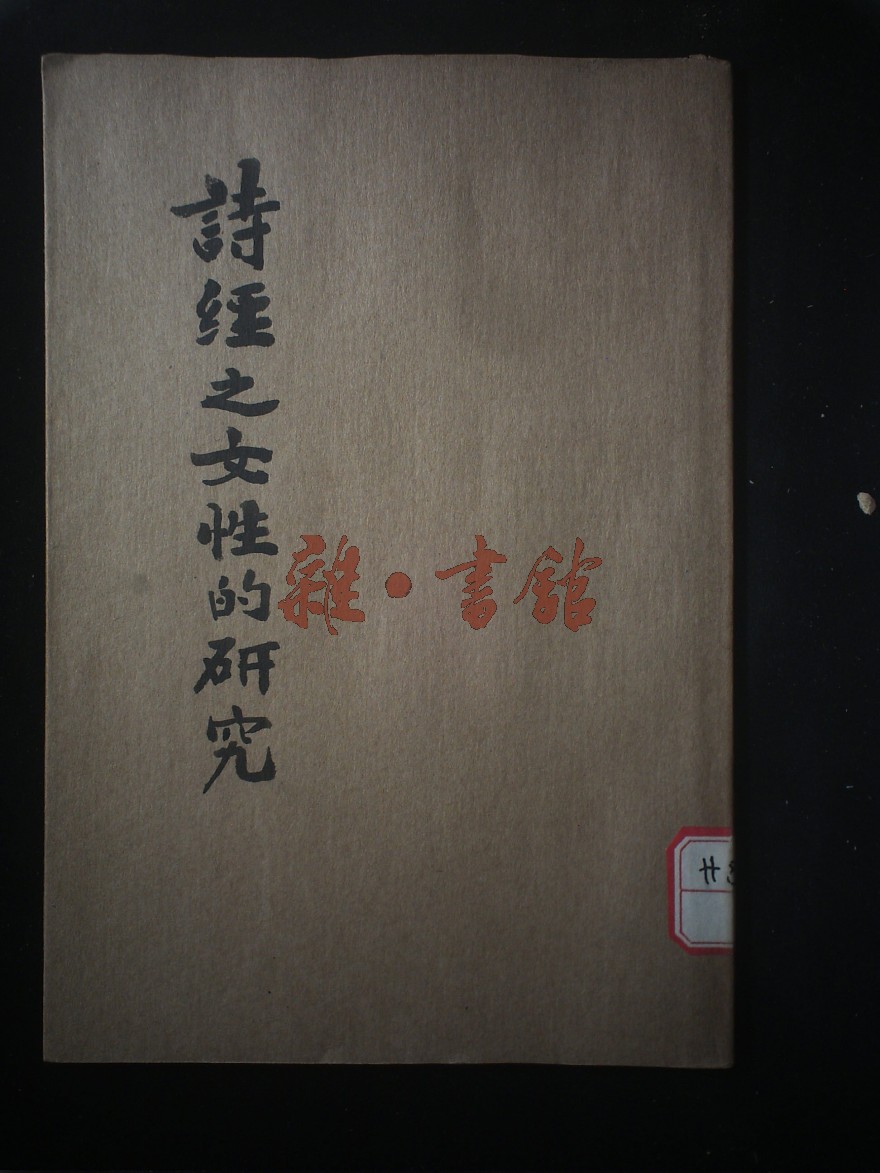 詩經之女性的研究
雜・書館